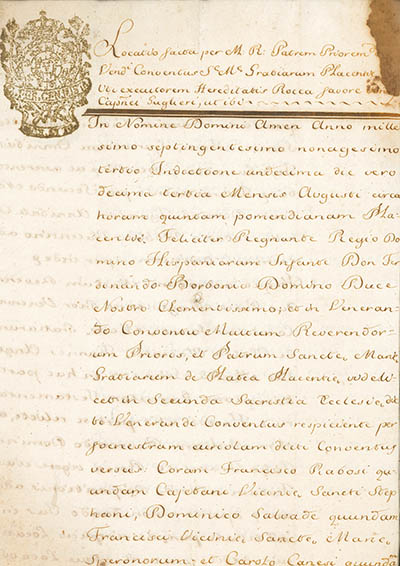 Locatio facta per M. R. Patrem Priorem
Vend. Conventus S. M. Gratiarum Placentiæ
Uti executorem Hereditatis Rocca favore
Guglieri, ut ibi
In Nomine Domini Amen Anno mille
simo septingentesimo nonagesimo
tertio Indictione undecima die vero
decima tertia Mensis Augusti circa
horam quintam pomeridianam Pla
centiæ, Feliciter Regnante Regio Do
mino Hispaniarum Infante Don Fer
dinando Borbonio Domino Duce
Nostro Clementissimo; et in Veneran
do Conventu Multum Reverendor
um Prioris, et Patrum Sanctæ Mariæ
Gratiarum de Platea Placentiæ, videli
cet in Secunda Sacristia Ecclesiæ, dic
ti Venerandi Conventus respiciente per
foenestram curiolam dicti Conventus
versus: Coram Francisco Rabosi qu
andam Cajetani Viciniæ Sancti Step
hani, Dominico Salvade quandam
Francisci Viciniæ Sanctæ Mariæ
Speronorum; et Carolo Canesi quandam